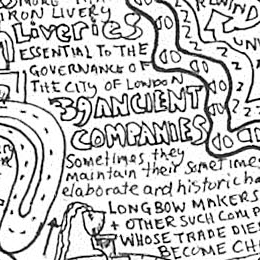 IRON LIVERY
Liveries
ESSENTIAL TO THE
GOVERNANCE OF
THE CITY OF LONDON
39 ANCIENT
COMPANIES
Sometimes they
maintain their sometimes
elaborate and historic
LONGBOW MAKERS
+ OTHER SUCH COMP
WHOSE TRADE DIE
BECOME CH
REWIND